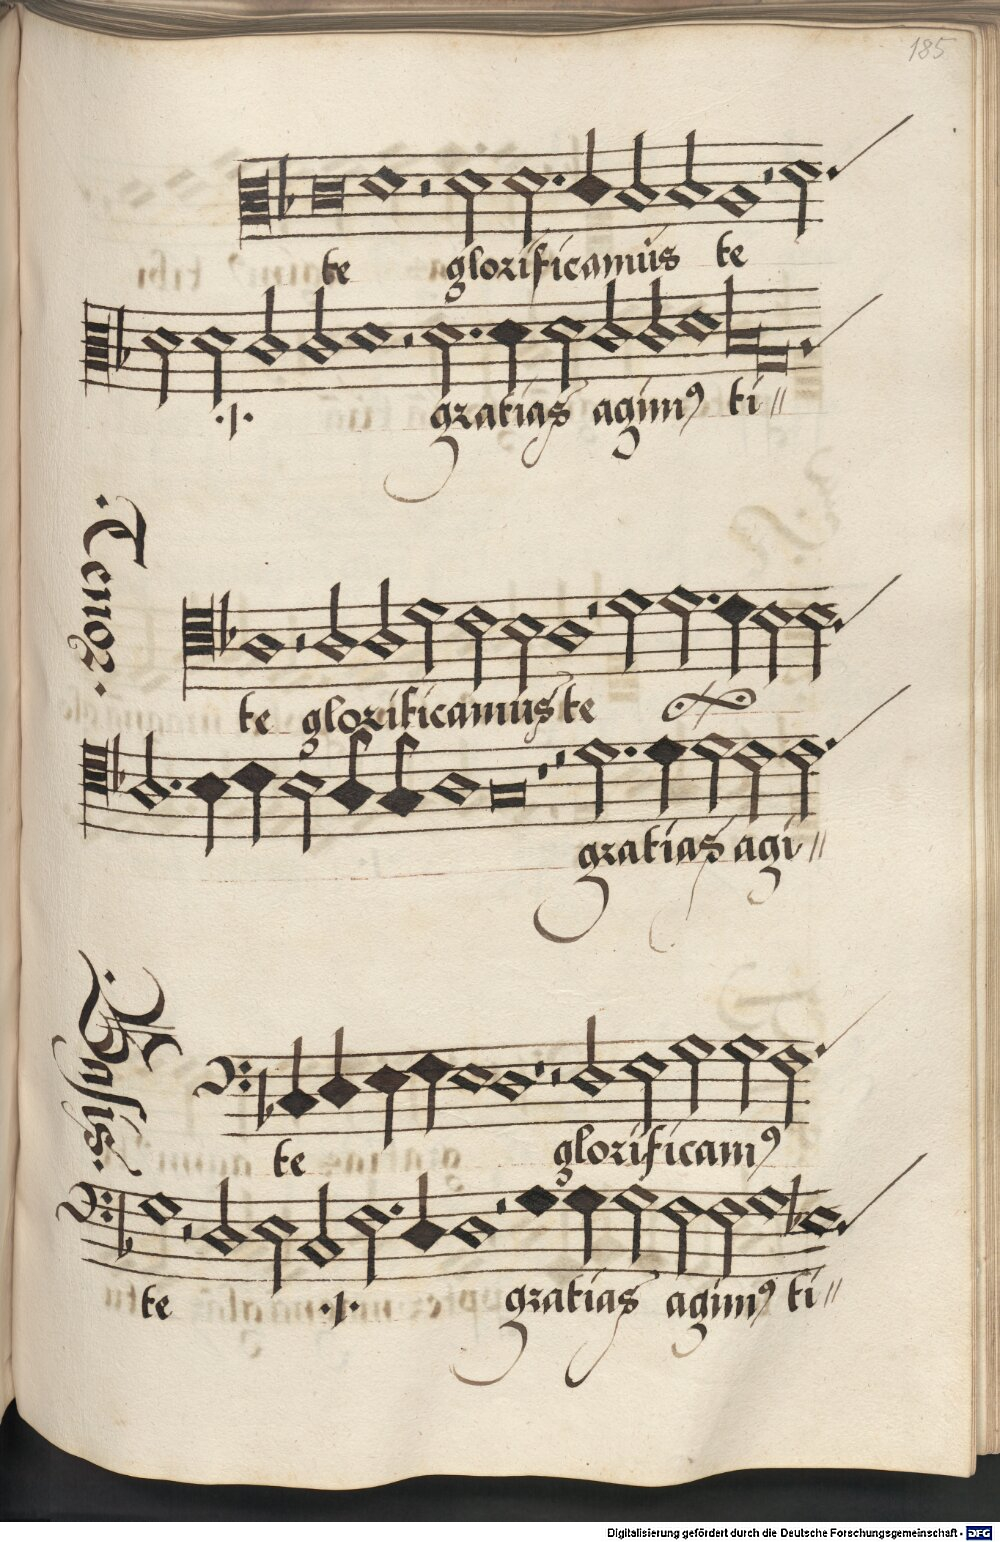 185
te glorificamus te
·I· gratias agimꝰ ti//
·Tenor·
te glorificamus te
gratias agi//
·Bassis·
te glorificamꝰ
te ·I· gratias agimꝰ ti//
Digitalisierung gefördert durch die Deutsche Forschungsgemeinschaft - DFG